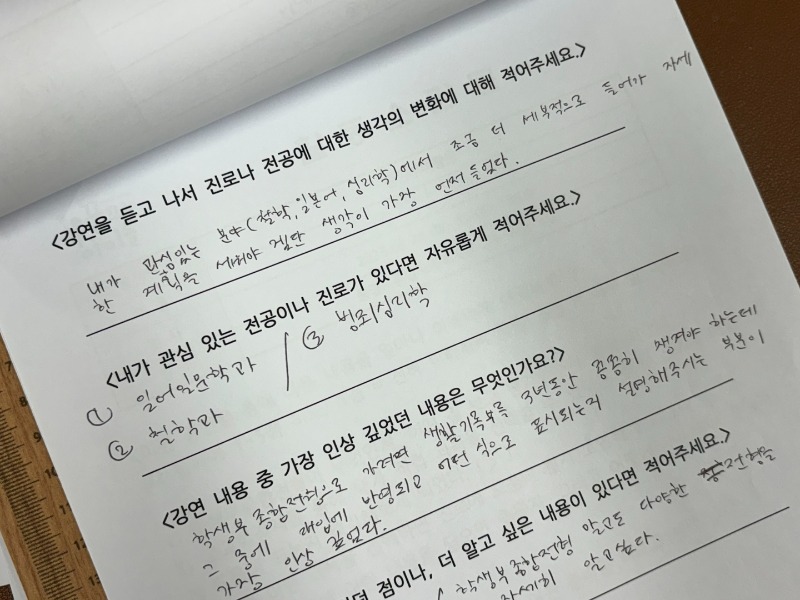 <강연을 듣고 나서 진로나 전공에 대한 생각의 변화에 대해 적어주세요.>
내가 관심있는 분야(철학, 일본어, 심리학)에서 조금 더 세부적으로 들어가 자세
한 계획을 세워야 겠단 생각이 가장 먼저 들었다.
<내가 관심 있는 전공이나 진로가 있다면 자유롭게 적어주세요.>
① 일어일문학과 / ③ 범죄심리학
② 철학과
<강연 내용 중 가장 인상 깊었던 내용은 무엇인가요?>
학생부 종합전형으로 가려면 생활기록부를 3년동안 꼼꼼히 챙겨야 하는데
그 중에 대입에 반영되고 어떤 식으로 표시되는지 설명해주시는 부분이
가장 인상 깊었다.
던 점이나, 더 알고 싶은 내용이 있다면 적어주세요.>
학생부종합전형 말고도 다양한 전형을
자세히 알고싶다.